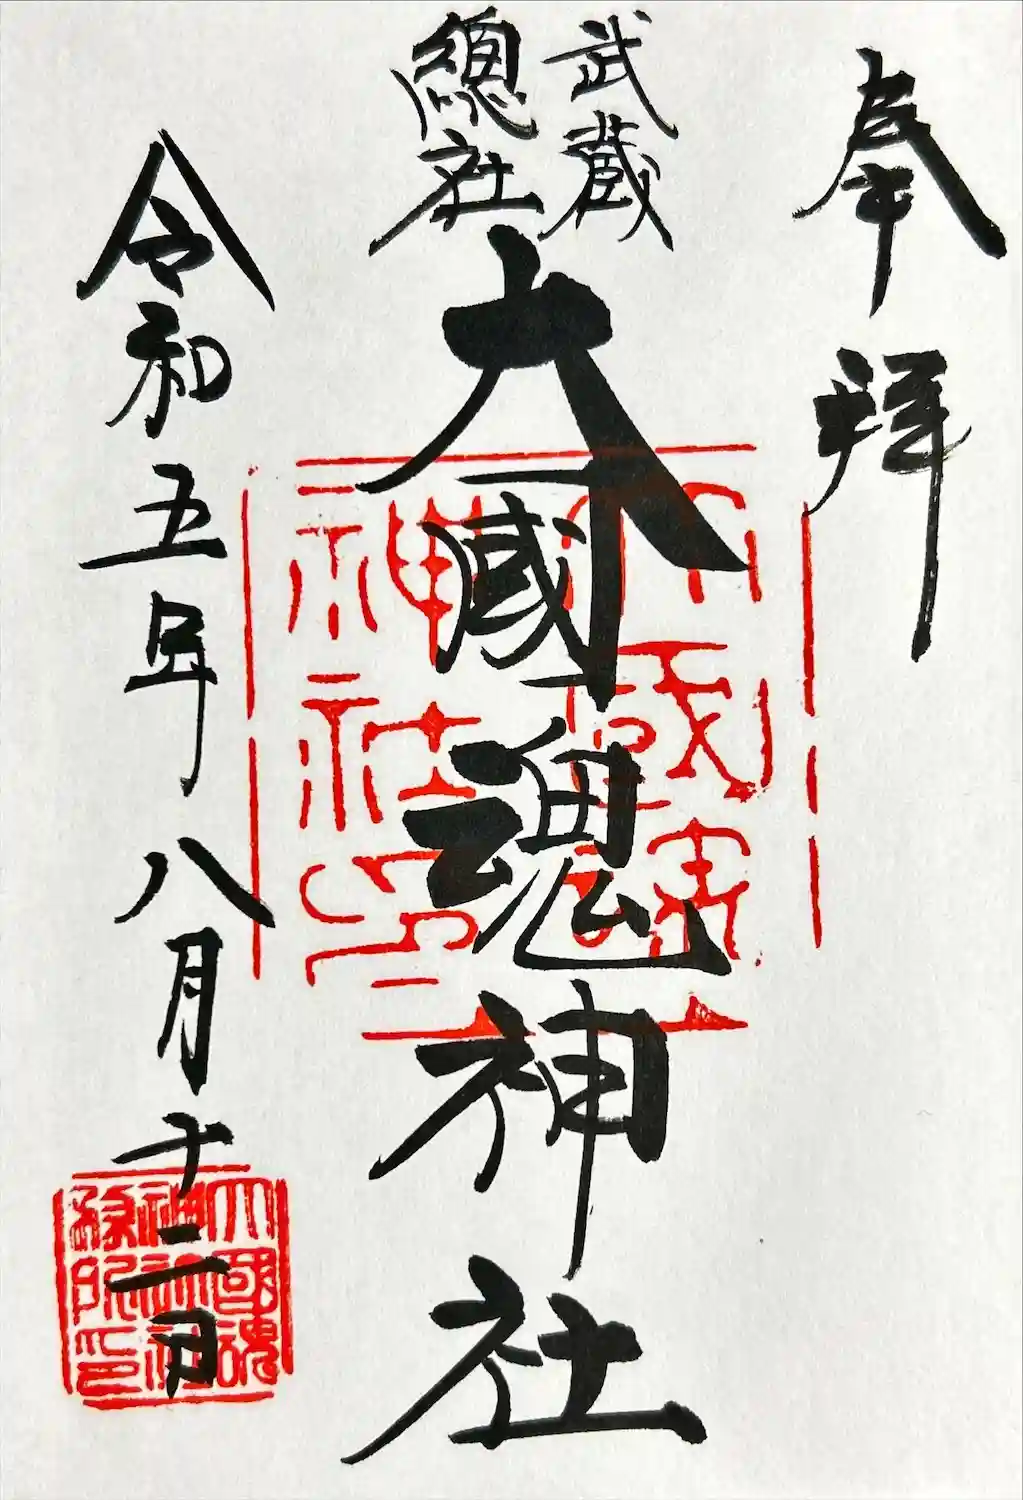 奉拝
武蔵
總社
大國魂神社
令和五年八月十二日
大國魂
神社印
大國魂
神社社
務所印